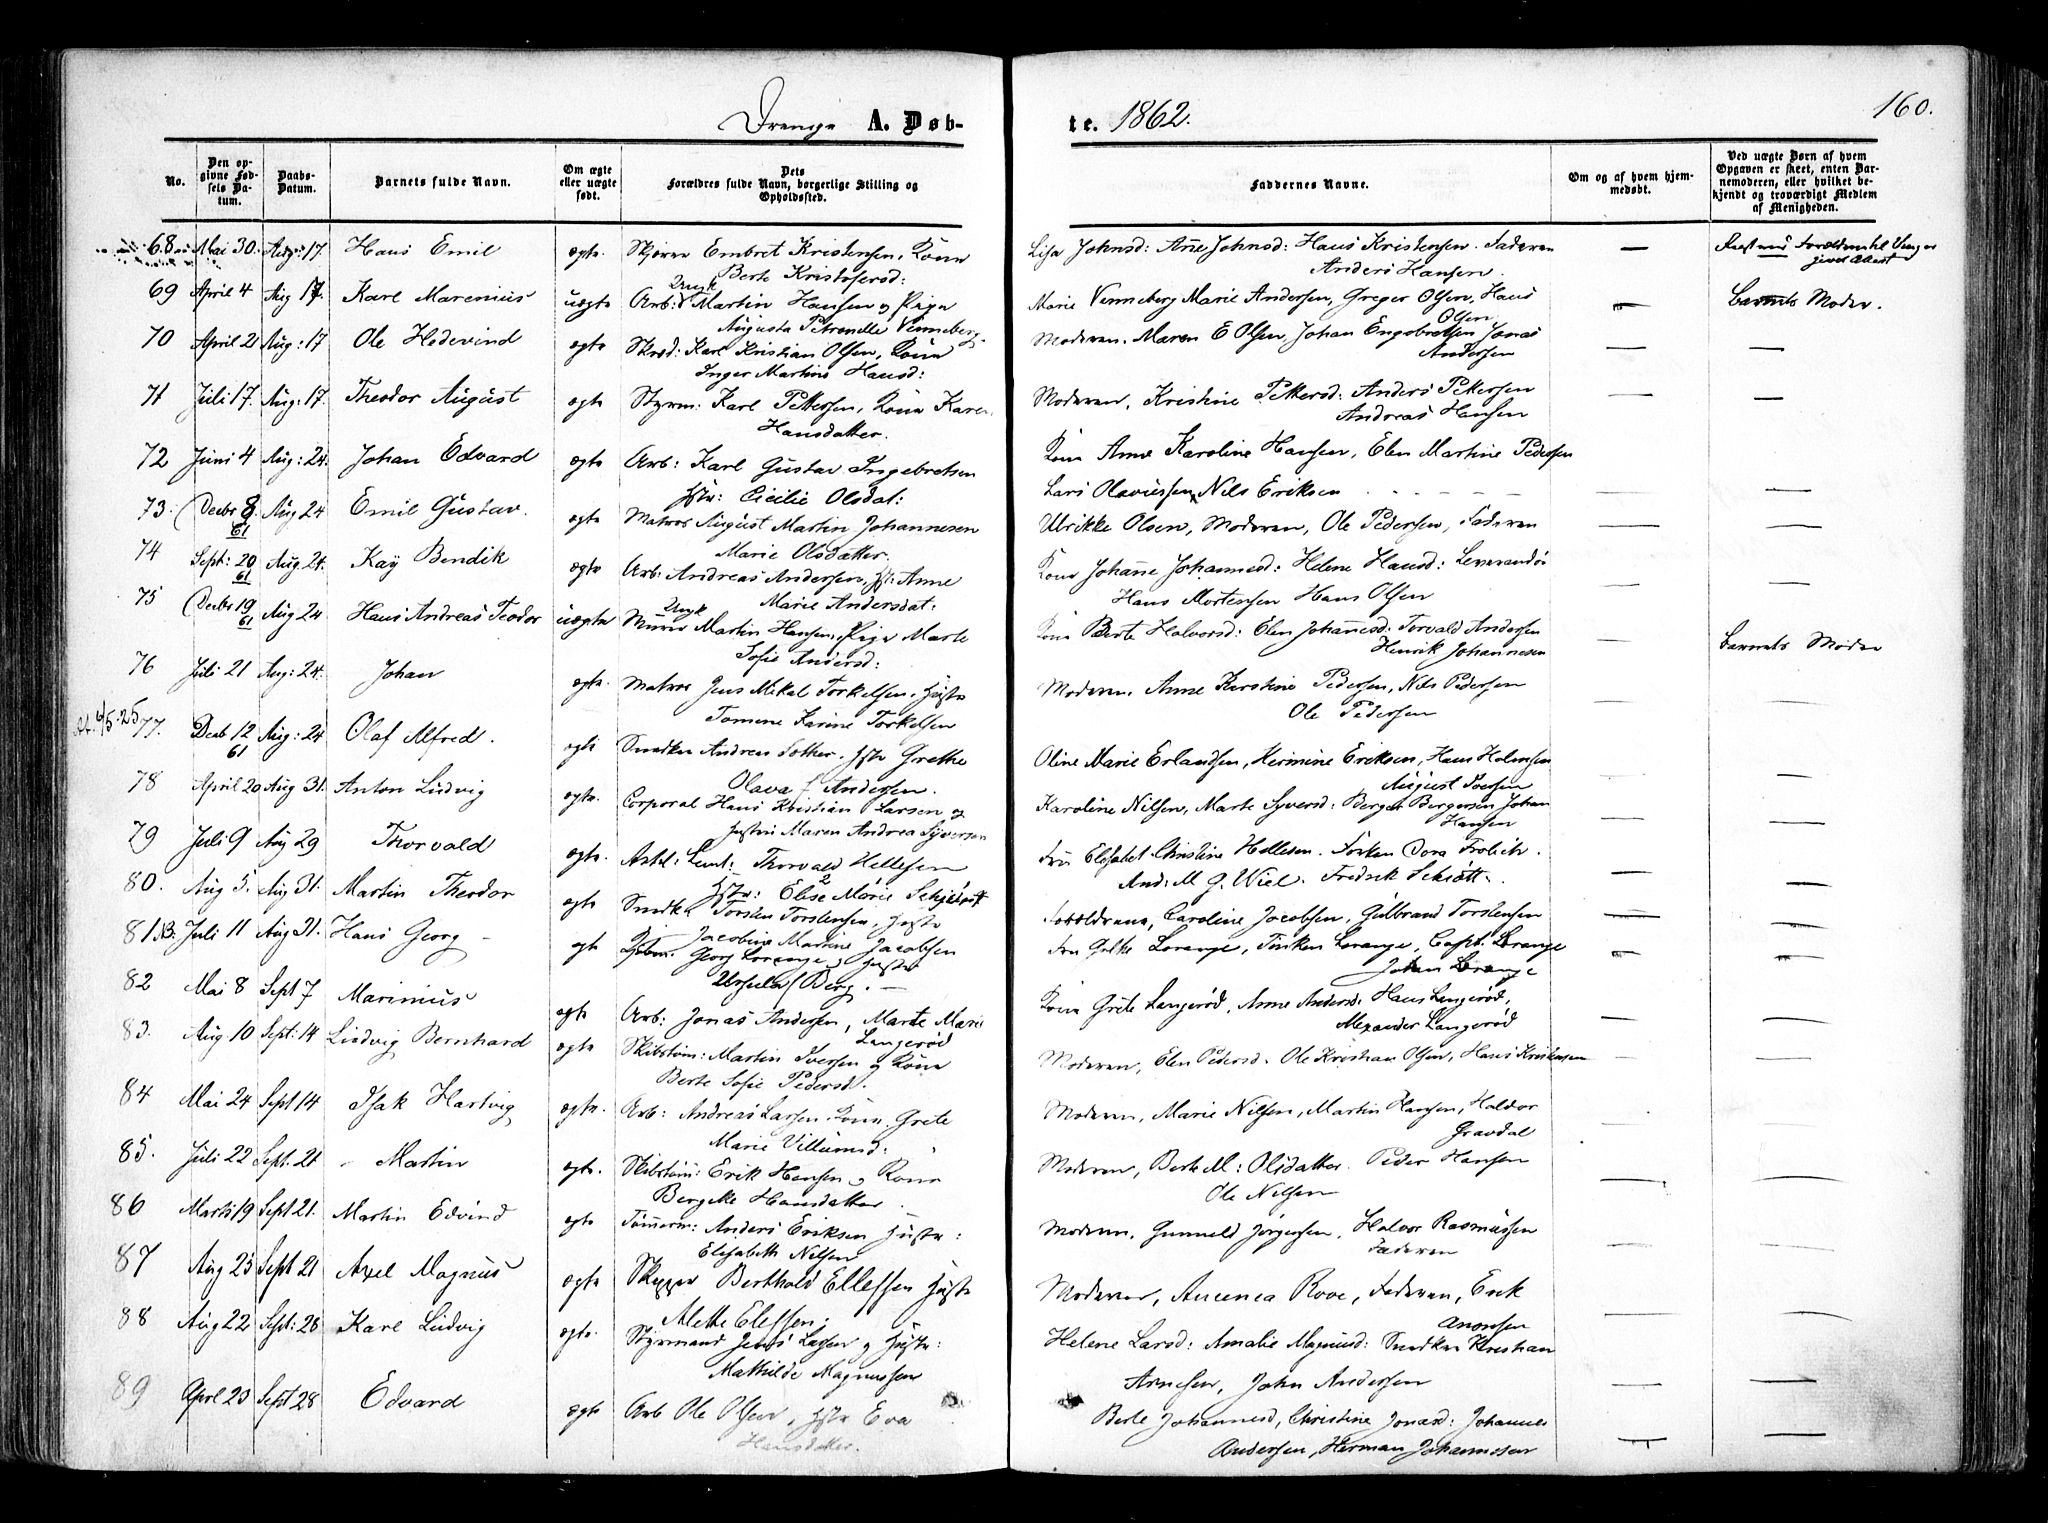 Drenge A. Døb-
te. 1862.
160.
No.
Den op-
givne Fød-
sels Da-
tum.
Daabs-
Datum.
Barnets fulde Navn.
Om ægte
eller uægte
født.
Dets
Forældres fulde Navn, borgerlige Stilling og
Opholdssted.
Faddernes Navne.
Om og af hvem hjem-
medøbt.
Ved uægte Børn af hvem
Opgaven er skeet, enten Bar-
nemoderen, eller hvilket be-
kjendt og troværdigt Medlem
af Menigheden.
68. Mai 30. Aug: 17. Hans Emil ægte. Embret Kristensen, Kona Lisa Johnsd: Ane Johnsd: Hans Kristensen. Faderen —
Berte Kristofersd: Anders Hansen.
69 April 4 Aug 17. Karl Marenius uægte Arb: Martin Hansen og Pige Marie Venneberg Marie Andersen, Greger Olsen, Hans — Barnets Moder.
Augusta Petronelle Venneberg Olsen
70 April 21 Aug: 17 Ole Hedevind ægte Karl Kristian Olsen, Kona Moderen. Maren E Olsen, Johan Engebretsen Jonas — —
Inger Martine Hansd: Andersen
71 Juli 17. Aug: 17. Theodor August ægte Styrm: Karl Pettersen, Kona Karen Moderen, Kristine Pettersd: Anders Pettersen — —
Hansdatter. Andreas Hansen
72 Juni 4 Aug: 24. Johan Edvard ægte Arb: Karl Gustav Ingebretsen Kona Anne Karoline Hansen, Elen Martine Pedersen
Hstr: Cicilie Olsdat: Lars Olaviessen, Nils Eriksen — —
73. Decbr 8. 61 Aug 24 Emil Gustav. ægte Matros August Martin Johannesen Ulrikke Olsen, Moderen, Ole Pedersen, Faderen — —
Marie Olsdatter.
74 Sept: 20 61 Aug. 24. Kay Bendik ægte Arb: Andreas Andersen, Hst: Anne Kona Johanne Johannesd: Helene Hansd: Leverandør — —
Marie Andersdat: Hans Mortensen Hans Olsen
75 Decbr 19 61 Aug 24 Hans Andreas Teodor uægte Murer Martin Hansen, Pige Marte Kona Berte Halvorsd: Elen Johannesd: Torvald Andersen — Barnets Moder
Sofie Andersd: Henrik Johannesen
76 Juli 21 Aug: 24. Johan ægte. Matros Jens Mikal Torkelsen. Hustr Moderen. Anne Kirstine Pedersen, Nils Pedersen
Tomene Karine Torkelsen Ole Pedersen
77. Decb 12 61 Aug: 24 Olaf Alfred. ægte Snedker Andreas Hstr Grethe Oline Marie Erlandsen, Hermine Eriksen, Hans Holmsen — —
Olava f Andersen. August Iversen
78 April 20 Aug 31. Anton Ludvig ægte. Corporal Hans Kristian Larsen og Karoline Nilsen, Marte Syversd: Berger Bergersen Johan — —
Hustru Maren Andrea Syversen Hansen
79 Juli 9 Aug 29 Thorvald ægte. Thorvald Hellesen Fru Elisabet Christine Hellesen. Frøken Dora Frolich. — —
Hstr: Elise Marie And: M G. Wiel. Fredrik Schiøtt.
80. Aug 5. Aug 31. Martin Theodor ægte Snedk Torsten Torstensen, Hustr Caroline Jacobsen, Gulbrand Torstensen — —
Jacobine Martine Jacobsen
81 Juli 11 Aug 31. Hans Georg — ægt Georg Lorange og Hustr Fru Lorange, Frøken Lorange, Capt. Lorange — —
Ursula f Berg. — Johan Lorange
82 Mai 8 Sept 7 Marinius ægte Arb: Jonas Andersen, Marte Marie Kona Grete Langerød, Anne Andersd: Hans Langerød, — —
Langerød Alexander Langerød
83. Aug 10 Sept: 14 Ludvig Bernhard ægte Skibstøm: Martin Iversen og Kona Moderen, Elen Pedersd. Ole Kristian Olsen, Hans Kristensen — —
Berte Sofie Pedersd.
84 Mai 24 Sept 14 Isak Hartvig ægte. Arb: Andreas Larsen. Kona. Grete Moderen, Marie Nilsen, Martin Hansen, Haldor — —
Marie Villumsd: Gravdal
85. Juli 22 Sept. 21 Martin ægte. Skibstøm: Erik Hansen og Kona Moderen, Berte M: Olsdatter. Peder Hansen — —
Bergitte Hansdatter. Ole Nilsen
86 Marts 19 Sept 21. Martin Edvind ægte Tømmerm: Anders Eriksen Hustr: Moderen. Gunneld Jørgensen, Halvor Rasmussen — —
Elisabeth Nilsen Faderen
87 Aug 25 Sept 21 Axel Magnus ægte Skipper Berthold Ellefsen Hustr Moderen, Rove, Faderen, Erik — —
Alette Elefsen; Aronsen
88 Aug 22 Sept: 28 Karl Ludvig ægte. Styrmand Jens Lassen og Hustr: Helene Larsd: Amalie Magnusd: Snedker Kristian
Mathilde Magnussen Arnesen, John Andersen — —
89 April 23 Sept 28 Edvard ægte Arb Ole Olsen, Hstr Eva Berte Johannesd, Christine Jonasd: Johannes
Hansdatter. Andersen, Herman Johannesen — —